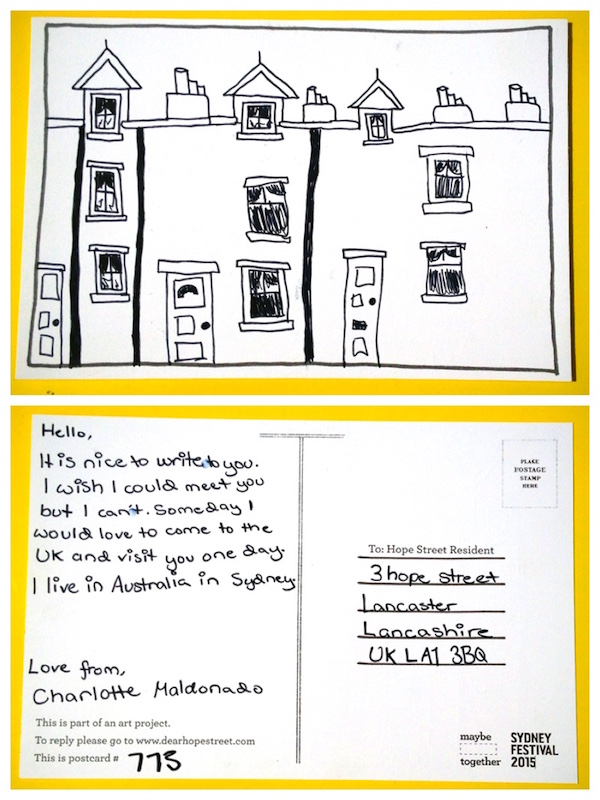 Hello,
It is nice to write to you.
I wish I could meet you
but I can't. Someday I
would love to come to the
UK and visit you one day.
I live in Australia in Sydney.
Love from,
Charlotte Maldonado
This is part of an art project.
To reply please go to www.dearhopestreet.com
This is postcard # 775
PLACE
POSTAGE
STAMP
HERE
To: Hope Street Resident
3 hope street
Lancaster
Lancashire
UK LA1 3BQ
maybe
together
SYDNEY
FESTIVAL
2015